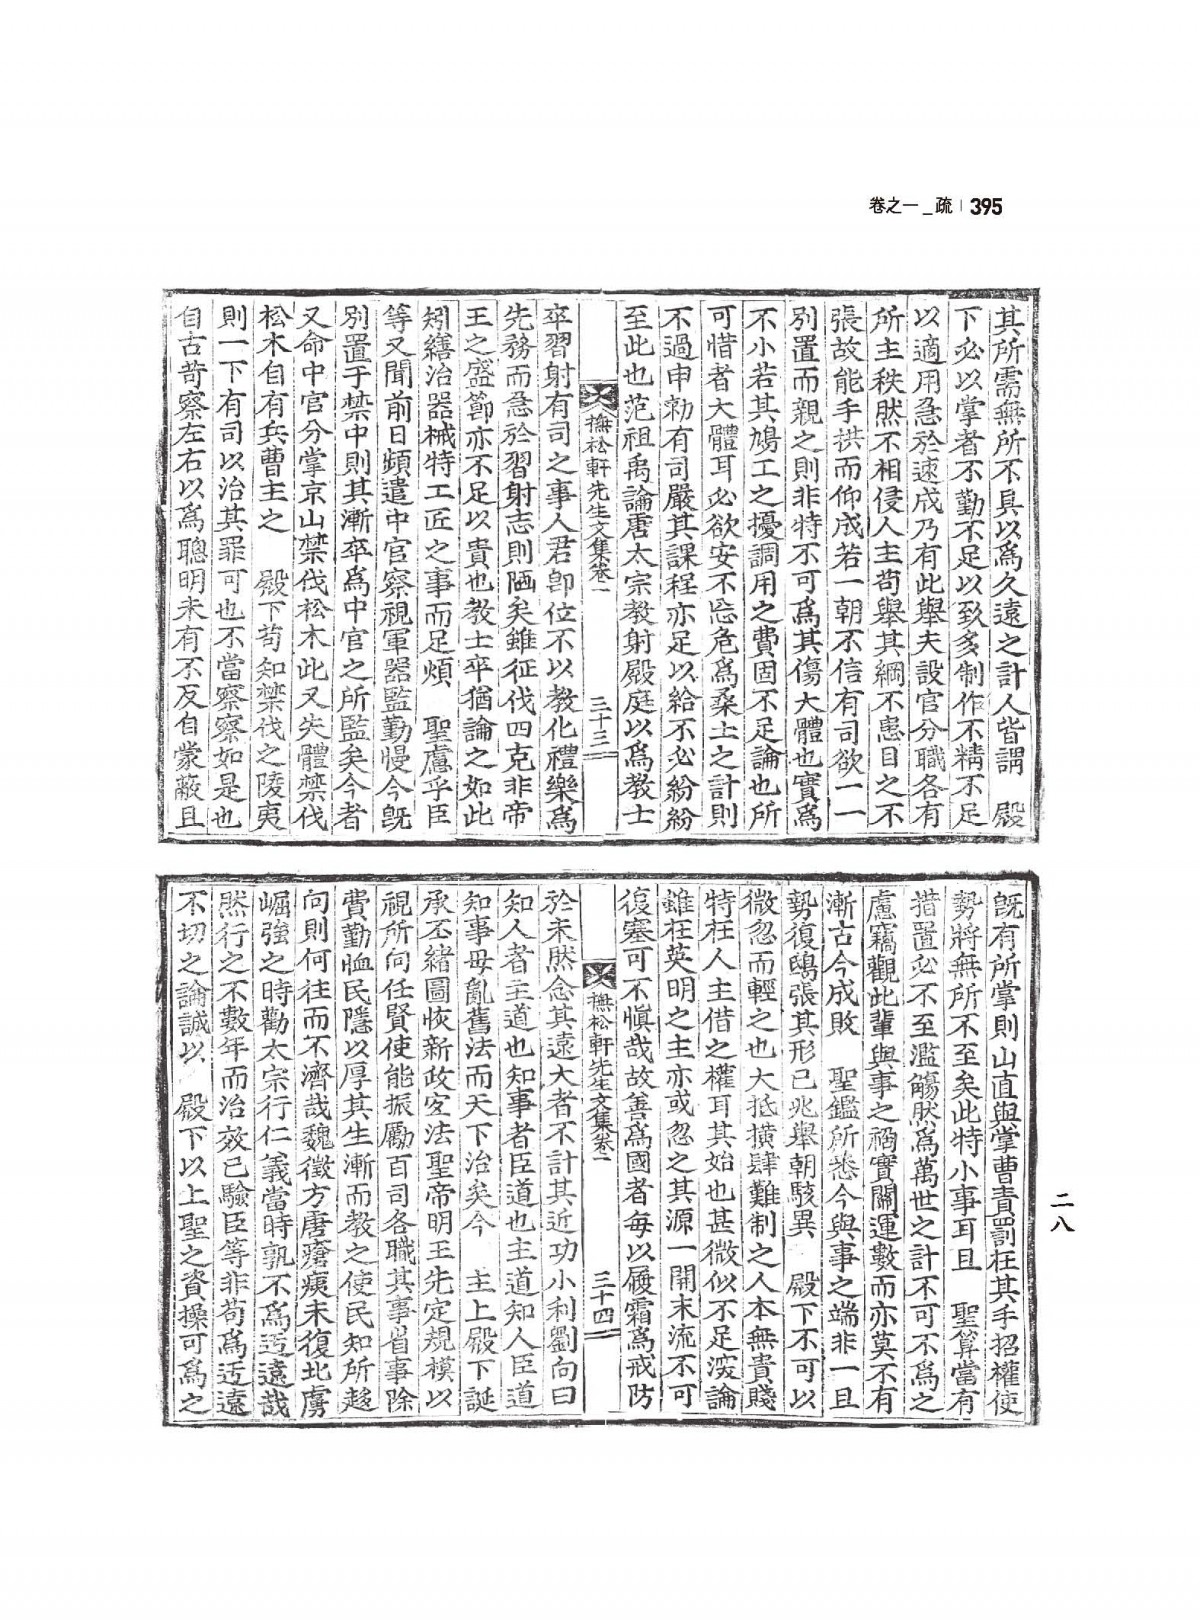 卷之一 _ 疏 | 395
其所需無所不具以爲久遠之計人皆謂 殿
下必以掌者不勤不足以致多制作不精不足
以適用急於速成乃有此擧夫設官分職各有
所主秩然不相侵人主苟擧其綱不患目之不
張故能手拱而仰成若一朝不信有司欲一一
別置而親之則非特不可爲其傷大體也實爲
不小若其鳩工之擾調用之費固不足論也所
可惜者大體耳必欲安不忘危爲桑土之計則
不過申勑有司嚴其課程亦足以給不必紛紛
至此也范祖禹論唐太宗教射殿庭以爲教士
撫松軒先生文集卷一 三十三
卒習射有司之事人君卽位不以教化禮樂爲
先務而急於習射志則陋矣雖征伐四克非帝
王之盛節亦不足以貴也教士卒猶論之如此
矧繕治器械特工匠之事而足煩 聖慮乎臣
等又聞前日頻遣中官察視軍器監勤慢今旣
別置于禁中則其漸卒爲中官之所監矣今者
又命中官分掌京山禁伐松木此又失體禁伐
松木自有兵曹主之 殿下苟知禁伐之陵夷
則一下有司以治其罪可也不當察察如是也
自古苛察左右以爲聰明未有不反自蒙蔽且
旣有所掌則山直與掌曹責罰在其手招權使
勢將無所不至矣此特小事耳且 聖算當有
措置必不至濫觴然爲萬世之計不可不爲之
慮竊觀此輩與事之禍實關運數而亦莫不有
漸古今成敗 聖鑑所悉今與事之端非一且
勢復鴟張其形已兆擧朝駭異 殿下不可以
微忽而輕之也大抵橫肆難制之人本無貴賤
特在人主借之權耳其始也甚微似不足深論
雖在英明之主亦或忽之其源一開末流不可
復塞可不愼哉故善爲國者每以履霜爲戒防
撫松軒先生文集卷一 三十四
於未然念其遠大者不計其近功小利劉向曰
知人者主道也知事者臣道也主道知人臣道
知事毋亂舊法而天下治矣今 主上殿下誕
承丕緖圖恢新政宜法聖帝明王先定規模以
視所向任賢使能振勵百司各職其事省事除
費勤恤民隱以厚其生漸而教之使民知所趍
向則何往而不濟哉魏徵方唐瘡痍未復北虜
崛強之時勸太宗行仁義當時孰不爲迃遠哉
然行之不數年而治效已驗臣等非苟爲迃遠
不切之論誠以 殿下以上聖之資操可爲之
二八